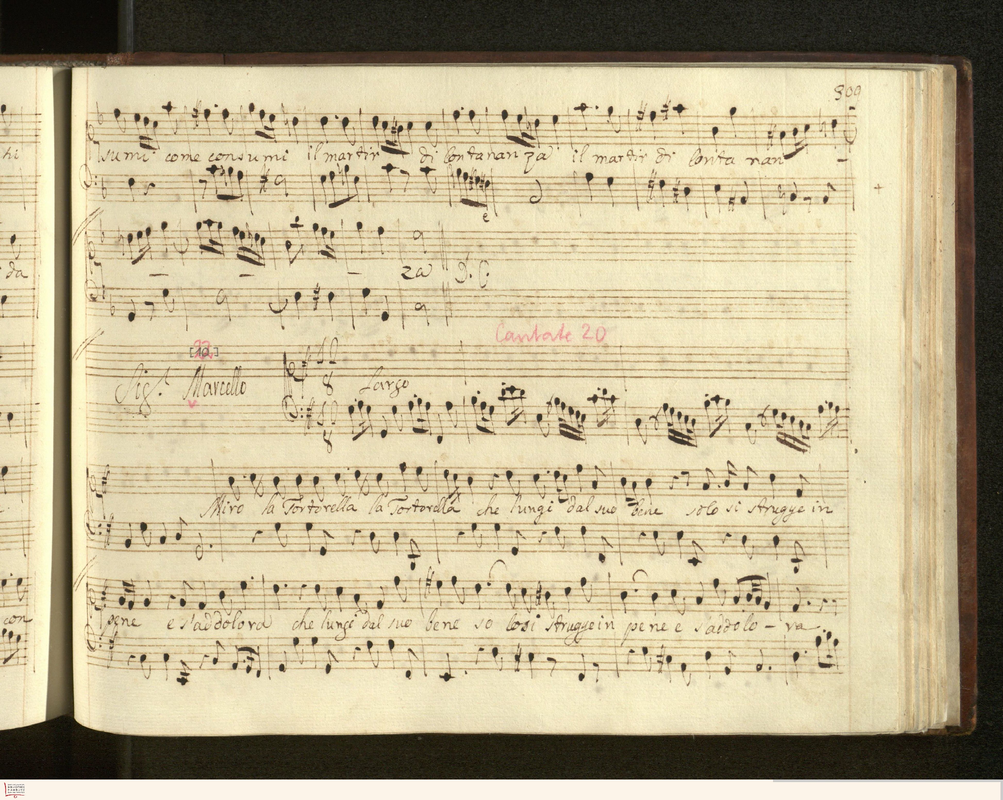 309
sumi come consumi il martir di lontananza il martir di lonta nan
hi
da
za D. C.
Cantate 20
Sig.r Marcello
12
8
Largo
12
8
Miro la Tortorella la Tortorella che lungi dal suo bene solo si strugge in
con
pene e s'addolora che lungi dal suo bene so lo si strugge in pene e s'addolo - ra